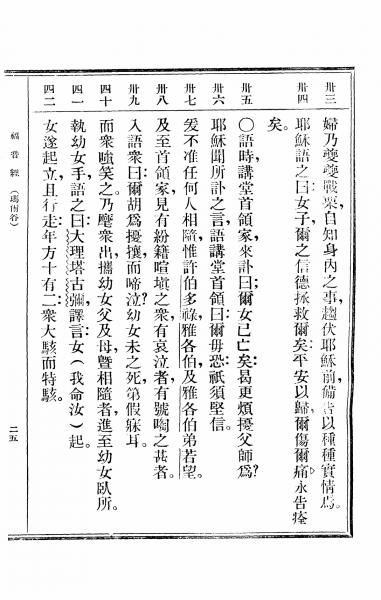 卅三 婦乃夔夔戰栗，自知身內之事，趨伏耶穌前，備吿以種種實情焉。
卅四 耶穌語之曰：女子，爾之信德拯救爾矣，平安以歸，爾傷爾痛，永吿痊
矣。
卅五 〇語時，講堂首領家，來訃曰：爾女已亡矣，曷更煩擾父師爲？
卅六 耶穌聞所訃之言，語講堂首領曰：爾毋恐，祇須堅信。
卅七 爰不准任何人相隨，惟許伯多祿，雅各伯，及雅各伯弟若望。
卅八 及至首領家，見有紛籍喧塡之衆，有哀泣者，有號啕之甚者。
卅九 入語衆曰：爾胡爲擾攘而啼泣？幼女未之死，第假寐耳。
四十 而衆嗤笑之。乃麾衆出，攜幼女父及母，曁相隨者，進至幼女臥所。
四一 執幼女手，語之曰：大理塔古彌，譯言女（我命汝）起。
四二 女遂起立，且行走，年方十有二，衆大駭而特駭。
福音經 （瑪爾谷） 二五